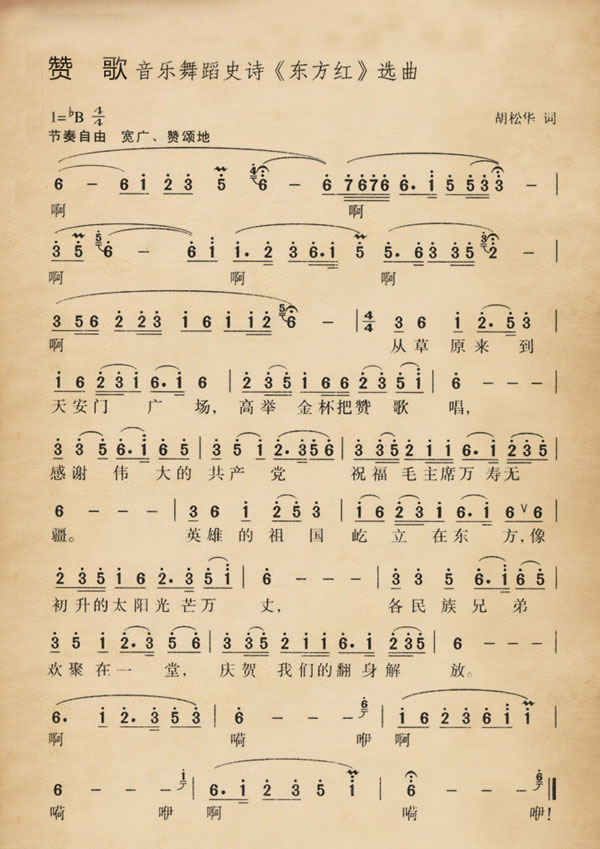 赞 歌 音乐舞蹈史诗《东方红》选曲
1=♭B 4/4
胡松华 词
节奏自由 宽广、赞颂地
6 - - 6 i 2 3 5 6 6 - - 6 7676 6. i 5 53 3 - |
啊 啊
3 5 5 6 - 6 i i. 2 3 6. i 5 5. 6 3 35 3 2 - |
啊 啊 啊
3 56 2 23 i 6 i i2 5 6 - | 4/4 3 6 i 2. 5 3 |
啊 从草原来到
i 6 2 3 i 6. i 6 | 2 35 i 66 2 3 5 i | 6 - - - |
天安门广场, 高举 金杯把赞歌 唱,
3 3 5 6. i 6 5 | 3 5 i 2. 3 5 6 | 3 5 2 i i 6. i 2 3 5 |
感谢伟大的共产党 祝福毛主席万寿无
6 - - - | 3 6 i 2 5 3 | i 6 2 3 i 6. i 6 ∨ 6 |
疆。 英雄的祖国 屹立在东方,像
2 35 i 6 2. 3 5 i | 6 - - - | 3 3 5 6. i 6 5 |
初升的太阳光芒万丈, 各民族兄弟
3 5 i 2. 3 5 6 | 3 5 2 i i 6. i 2 3 5 | 6 - - - |
欢聚在一堂, 庆贺我们的翻身解放。
6. i 2. 3 5 3 | 6 - - - 6 | i 6 2 3 6 i i |
啊 嗬 咿 啊
6 - - - i | 6. i 2 3 5 i | 6 - - - 6 ‖
嗬 咿 啊 嗬 咿!